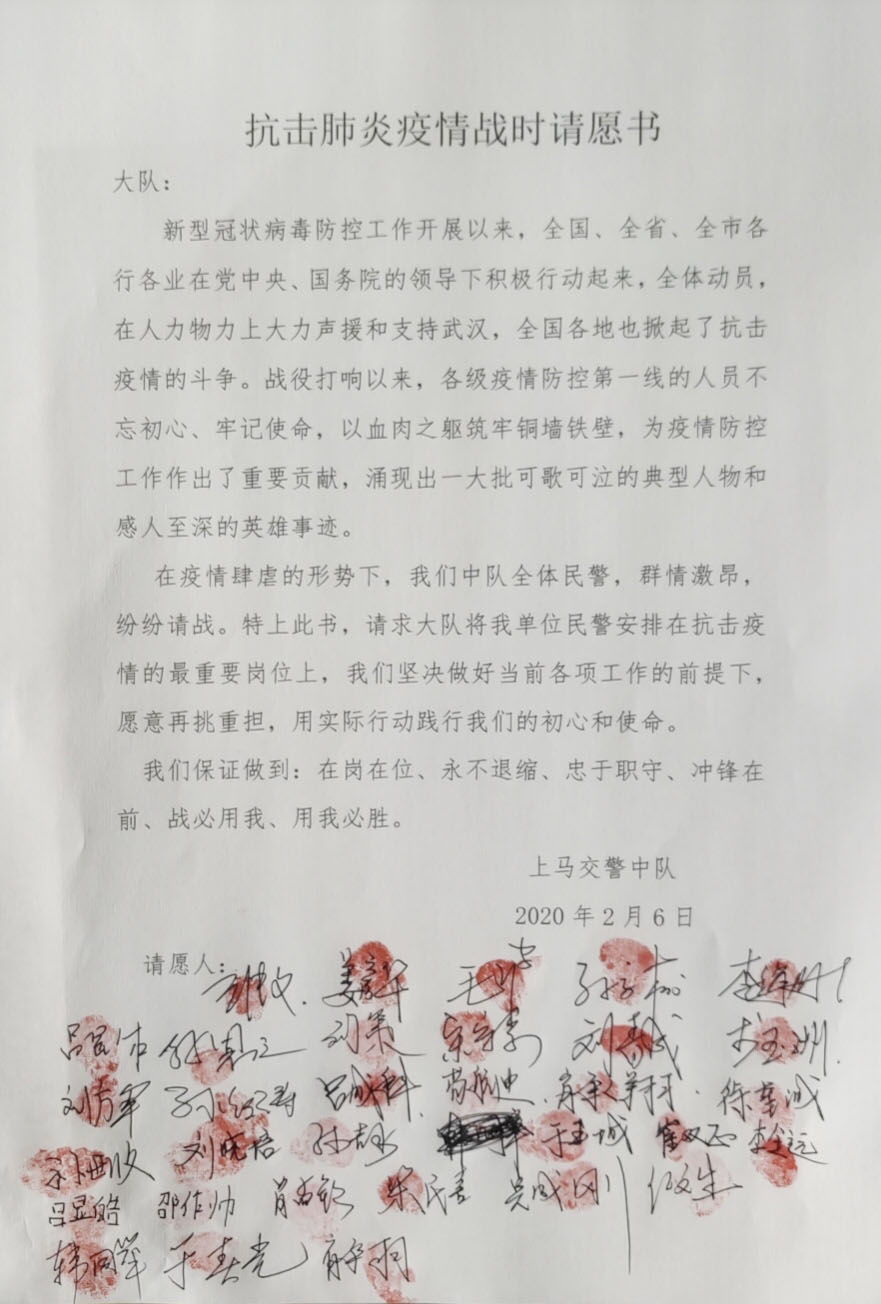 抗击肺炎疫情战时请愿书
大队：
新型冠状病毒防控工作开展以来，全国、全省、全市各
行各业在党中央、国务院的领导下积极行动起来，全体动员，
在人力物力上大力声援和支持武汉，全国各地也掀起了抗击
疫情的斗争。战役打响以来，各级疫情防控第一线的人员不
忘初心、牢记使命，以血肉之躯筑牢铜墙铁壁，为疫情防控
工作作出了重要贡献，涌现出一大批可歌可泣的典型人物和
感人至深的英雄事迹。
在疫情肆虐的形势下，我们中队全体民警，群情激昂，
纷纷请战。特上此书，请求大队将我单位民警安排在抗击疫
情的最重要岗位上，我们坚决做好当前各项工作的前提下，
愿意再挑重担，用实际行动践行我们的初心和使命。
我们保证做到：在岗在位、永不退缩、忠于职守、冲锋在
前、战必用我、用我必胜。
上马交警中队
2020 年 2 月 6 日
请愿人：
刘策
刘晓培
邵作帅
于春光